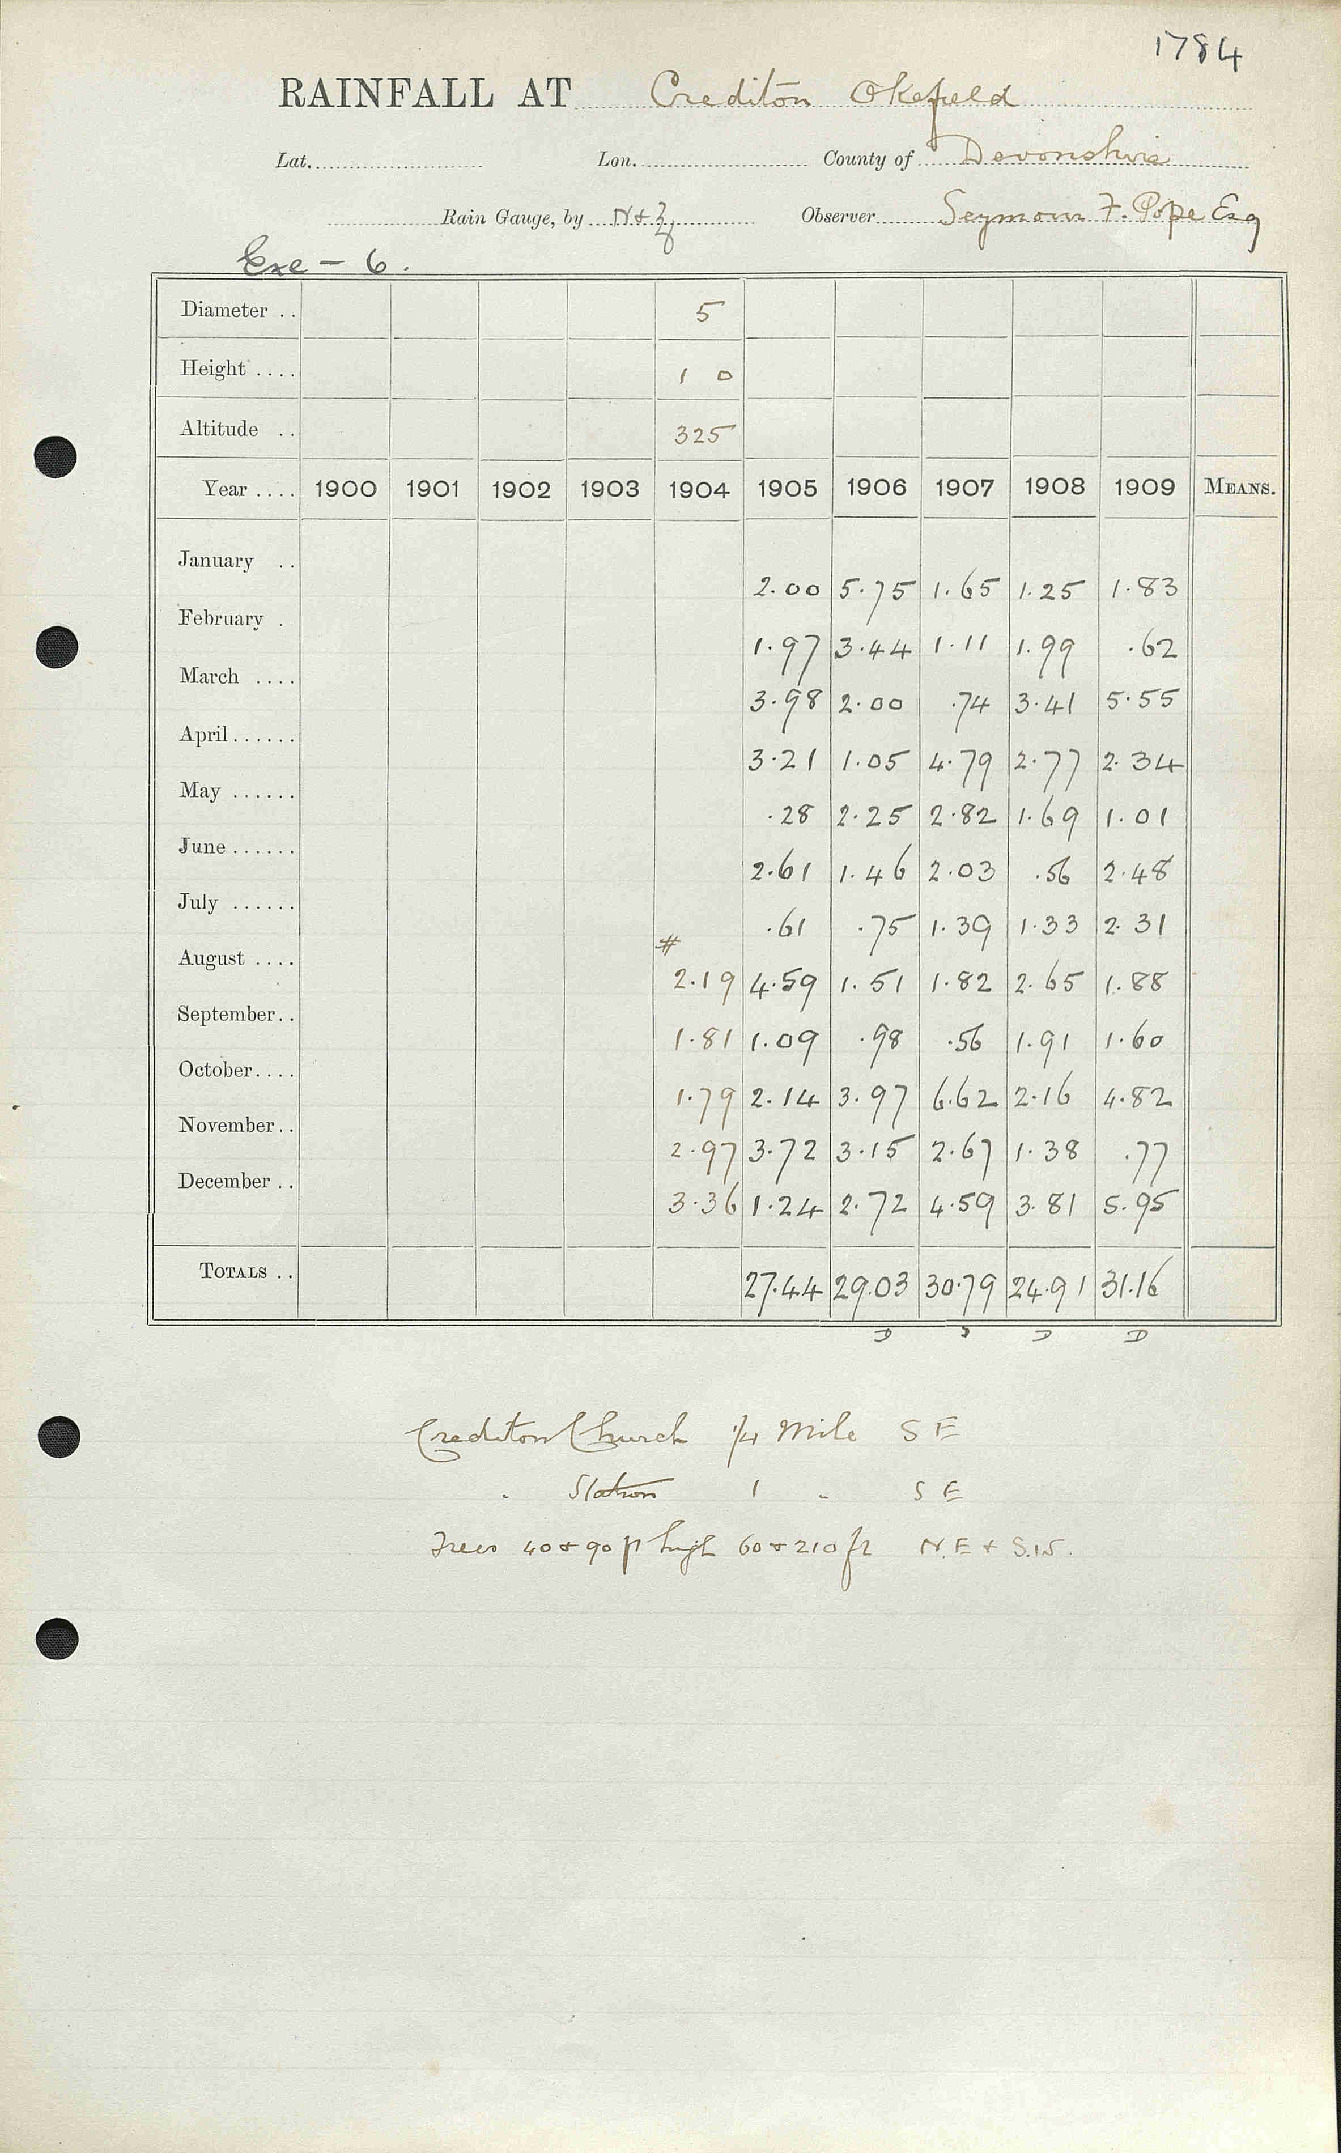 1784
RAINFALL AT Crediton Okefield
Lat. Lon. County of Devonshire
Rain Gauge, by N & Z Observer Seymour F. Pope Esq
Exe - 6.
Diameter .. 5
Height .... 1 0
Altitude .. 325
Year .... 1900 1901 1902 1903 1904 1905 1906 1907 1908 1909 MEANS.
January .. 2.00 5.75 1.65 1.25 1.83
February . 1.97 3.44 1.11 1.99 .62
March .... 3.98 2.00 .74 3.41 5.55
April...... 3.21 1.05 4.79 2.77 2.34
May ...... .28 2.25 2.82 1.69 1.01
June...... 2.61 1.46 2.03 .56 2.48
July ...... .61 .75 1.39 1.33 2.31
August .... # 2.19 4.59 1.51 1.82 2.65 1.88
September.. 1.81 1.09 .98 .56 1.91 1.60
October.... 1.79 2.14 3.97 6.62 2.16 4.82
November.. 2.97 3.72 3.15 2.67 1.38 .77
December .. 3.36 1.24 2.72 4.59 3.81 5.95
TOTALS .. 27.44 29.03 30.79 24.91 31.16
D D D D
Crediton Church 1/4 Mile S E
" Station 1 " S E
Trees 40 & 90 ft high 60 & 210 ft N.E & S.W.